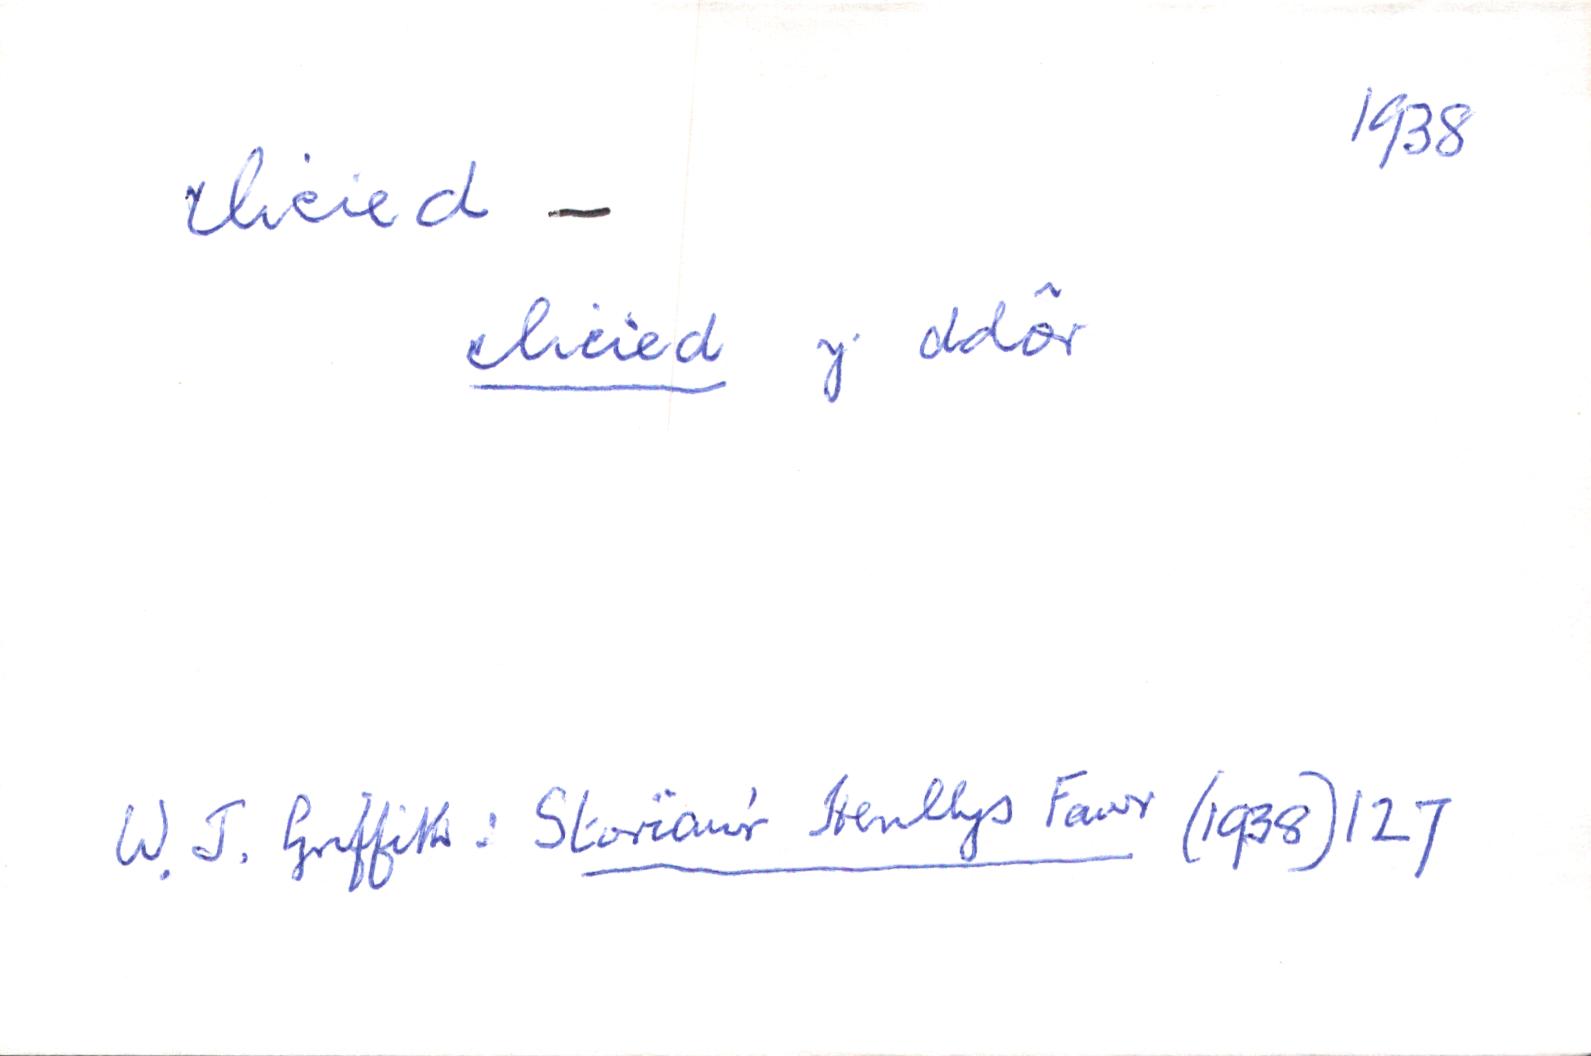 1938
clicied —
clicied y ddôr
W. J. Griffith: Storïau'r Henllys Fawr (1938) 127